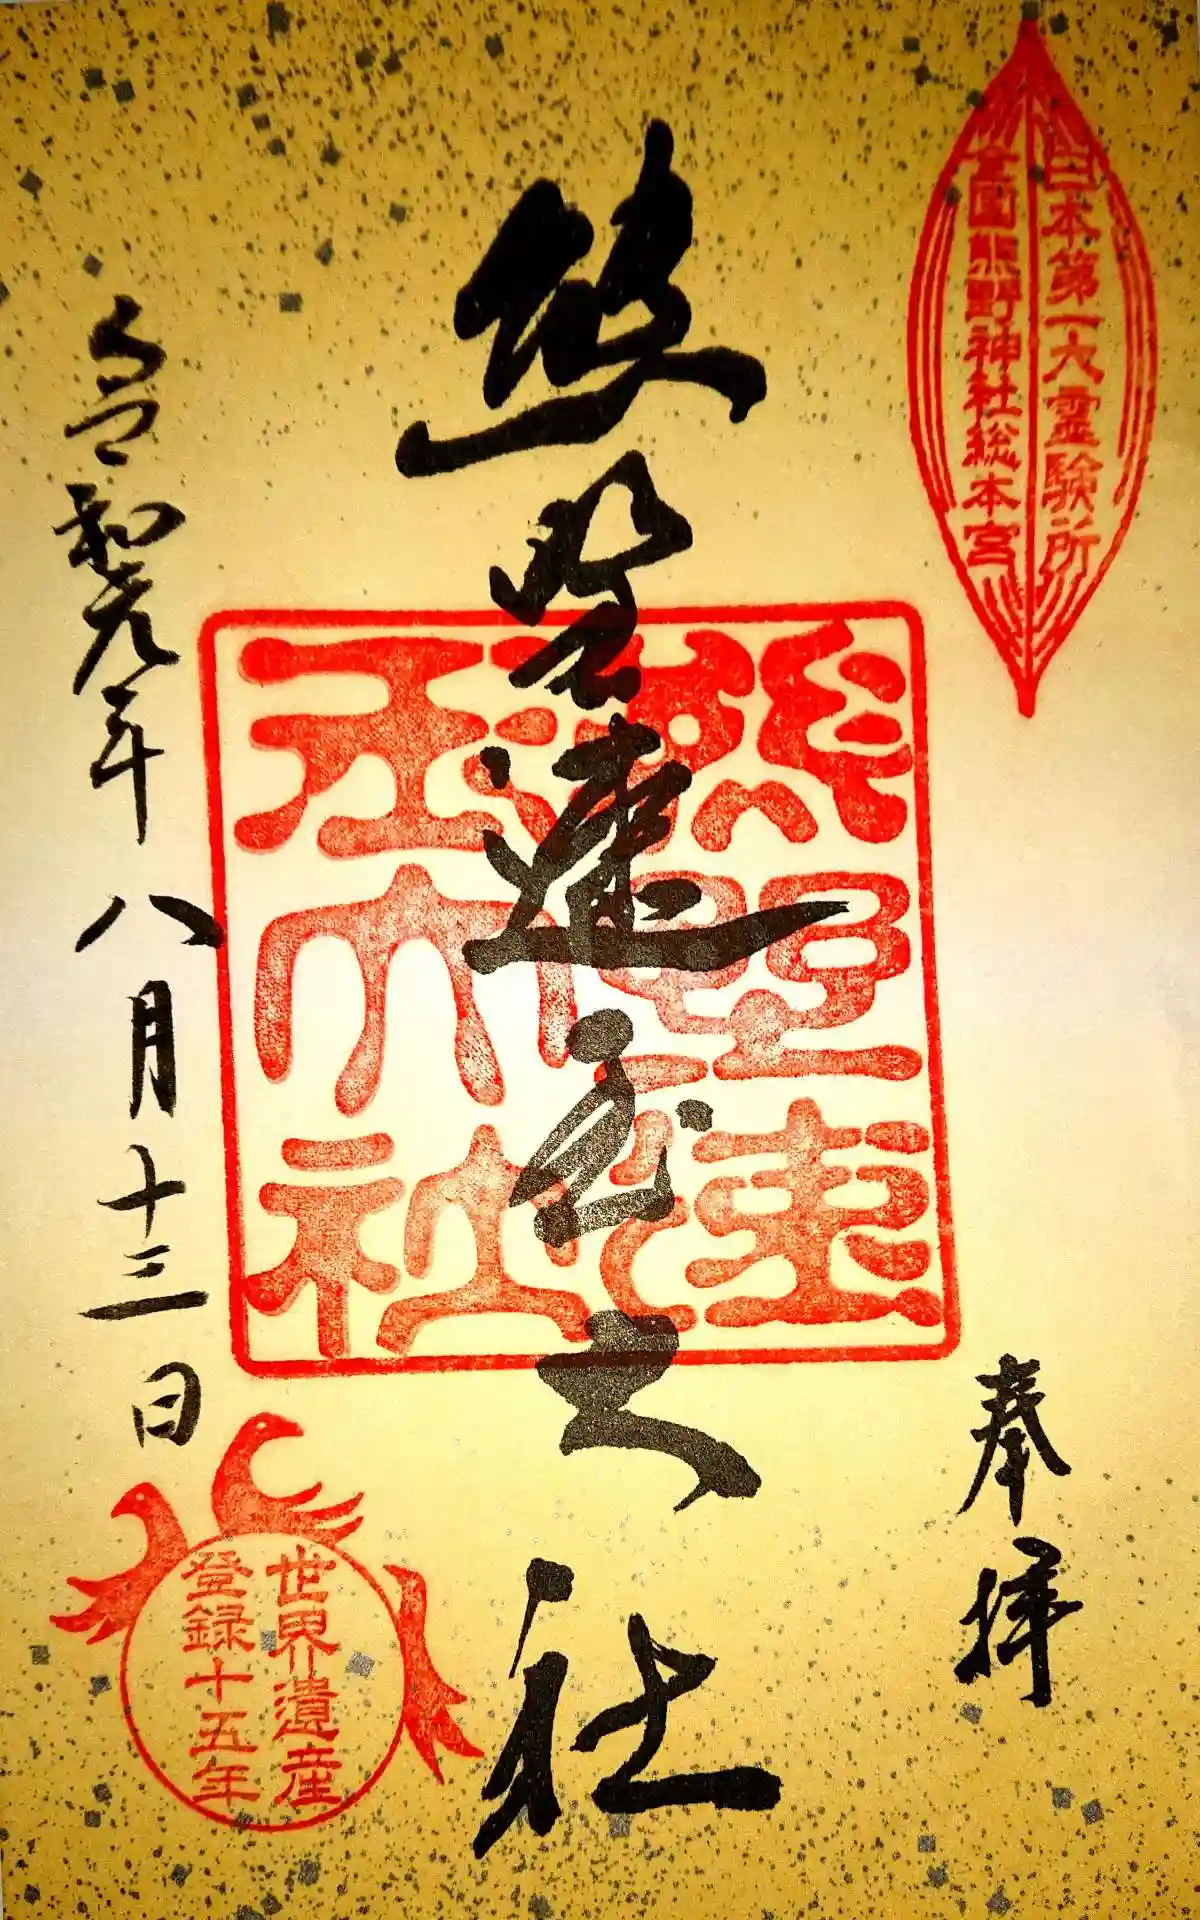 日本第一大霊験所
全国熊野神社総本宮
奉拝
熊埜速玉大社
熊野速
玉大社
令和元年八月十三日
世界遺産
登録十五年